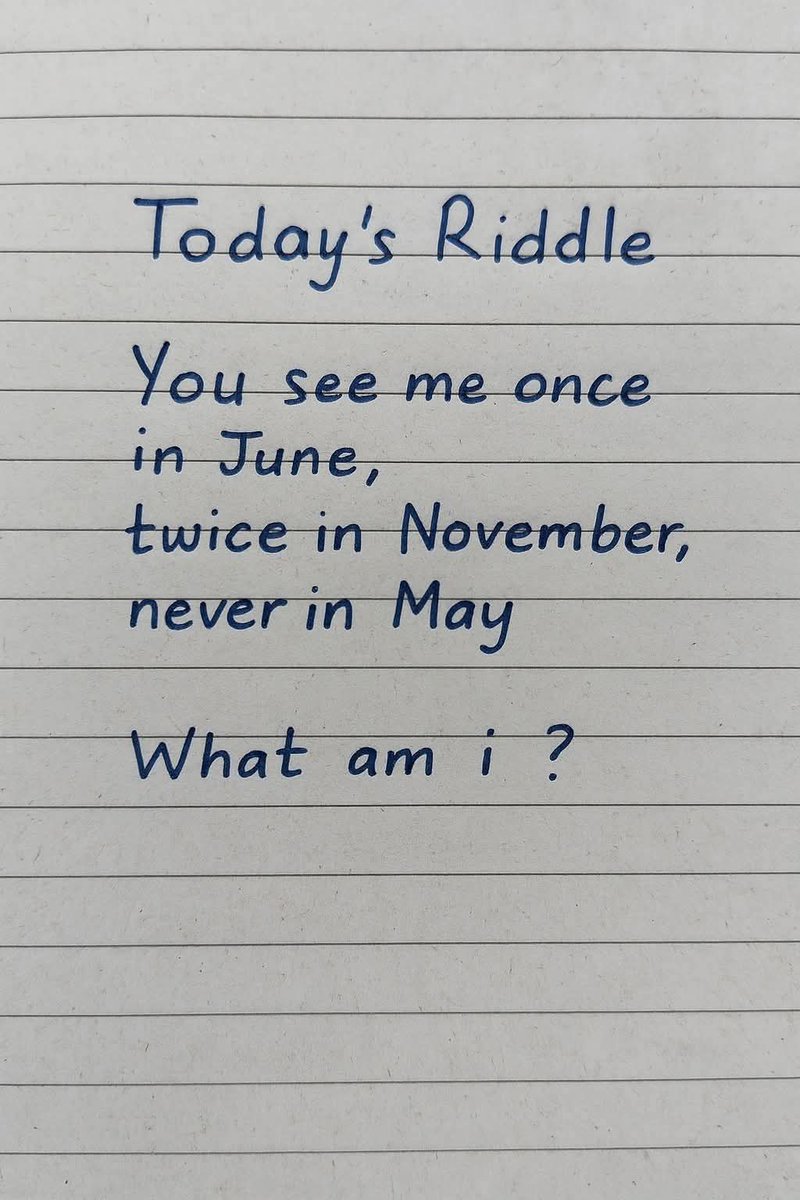 Today's Riddle
You see me once
in June,
twice in November,
never in May
What am i ?